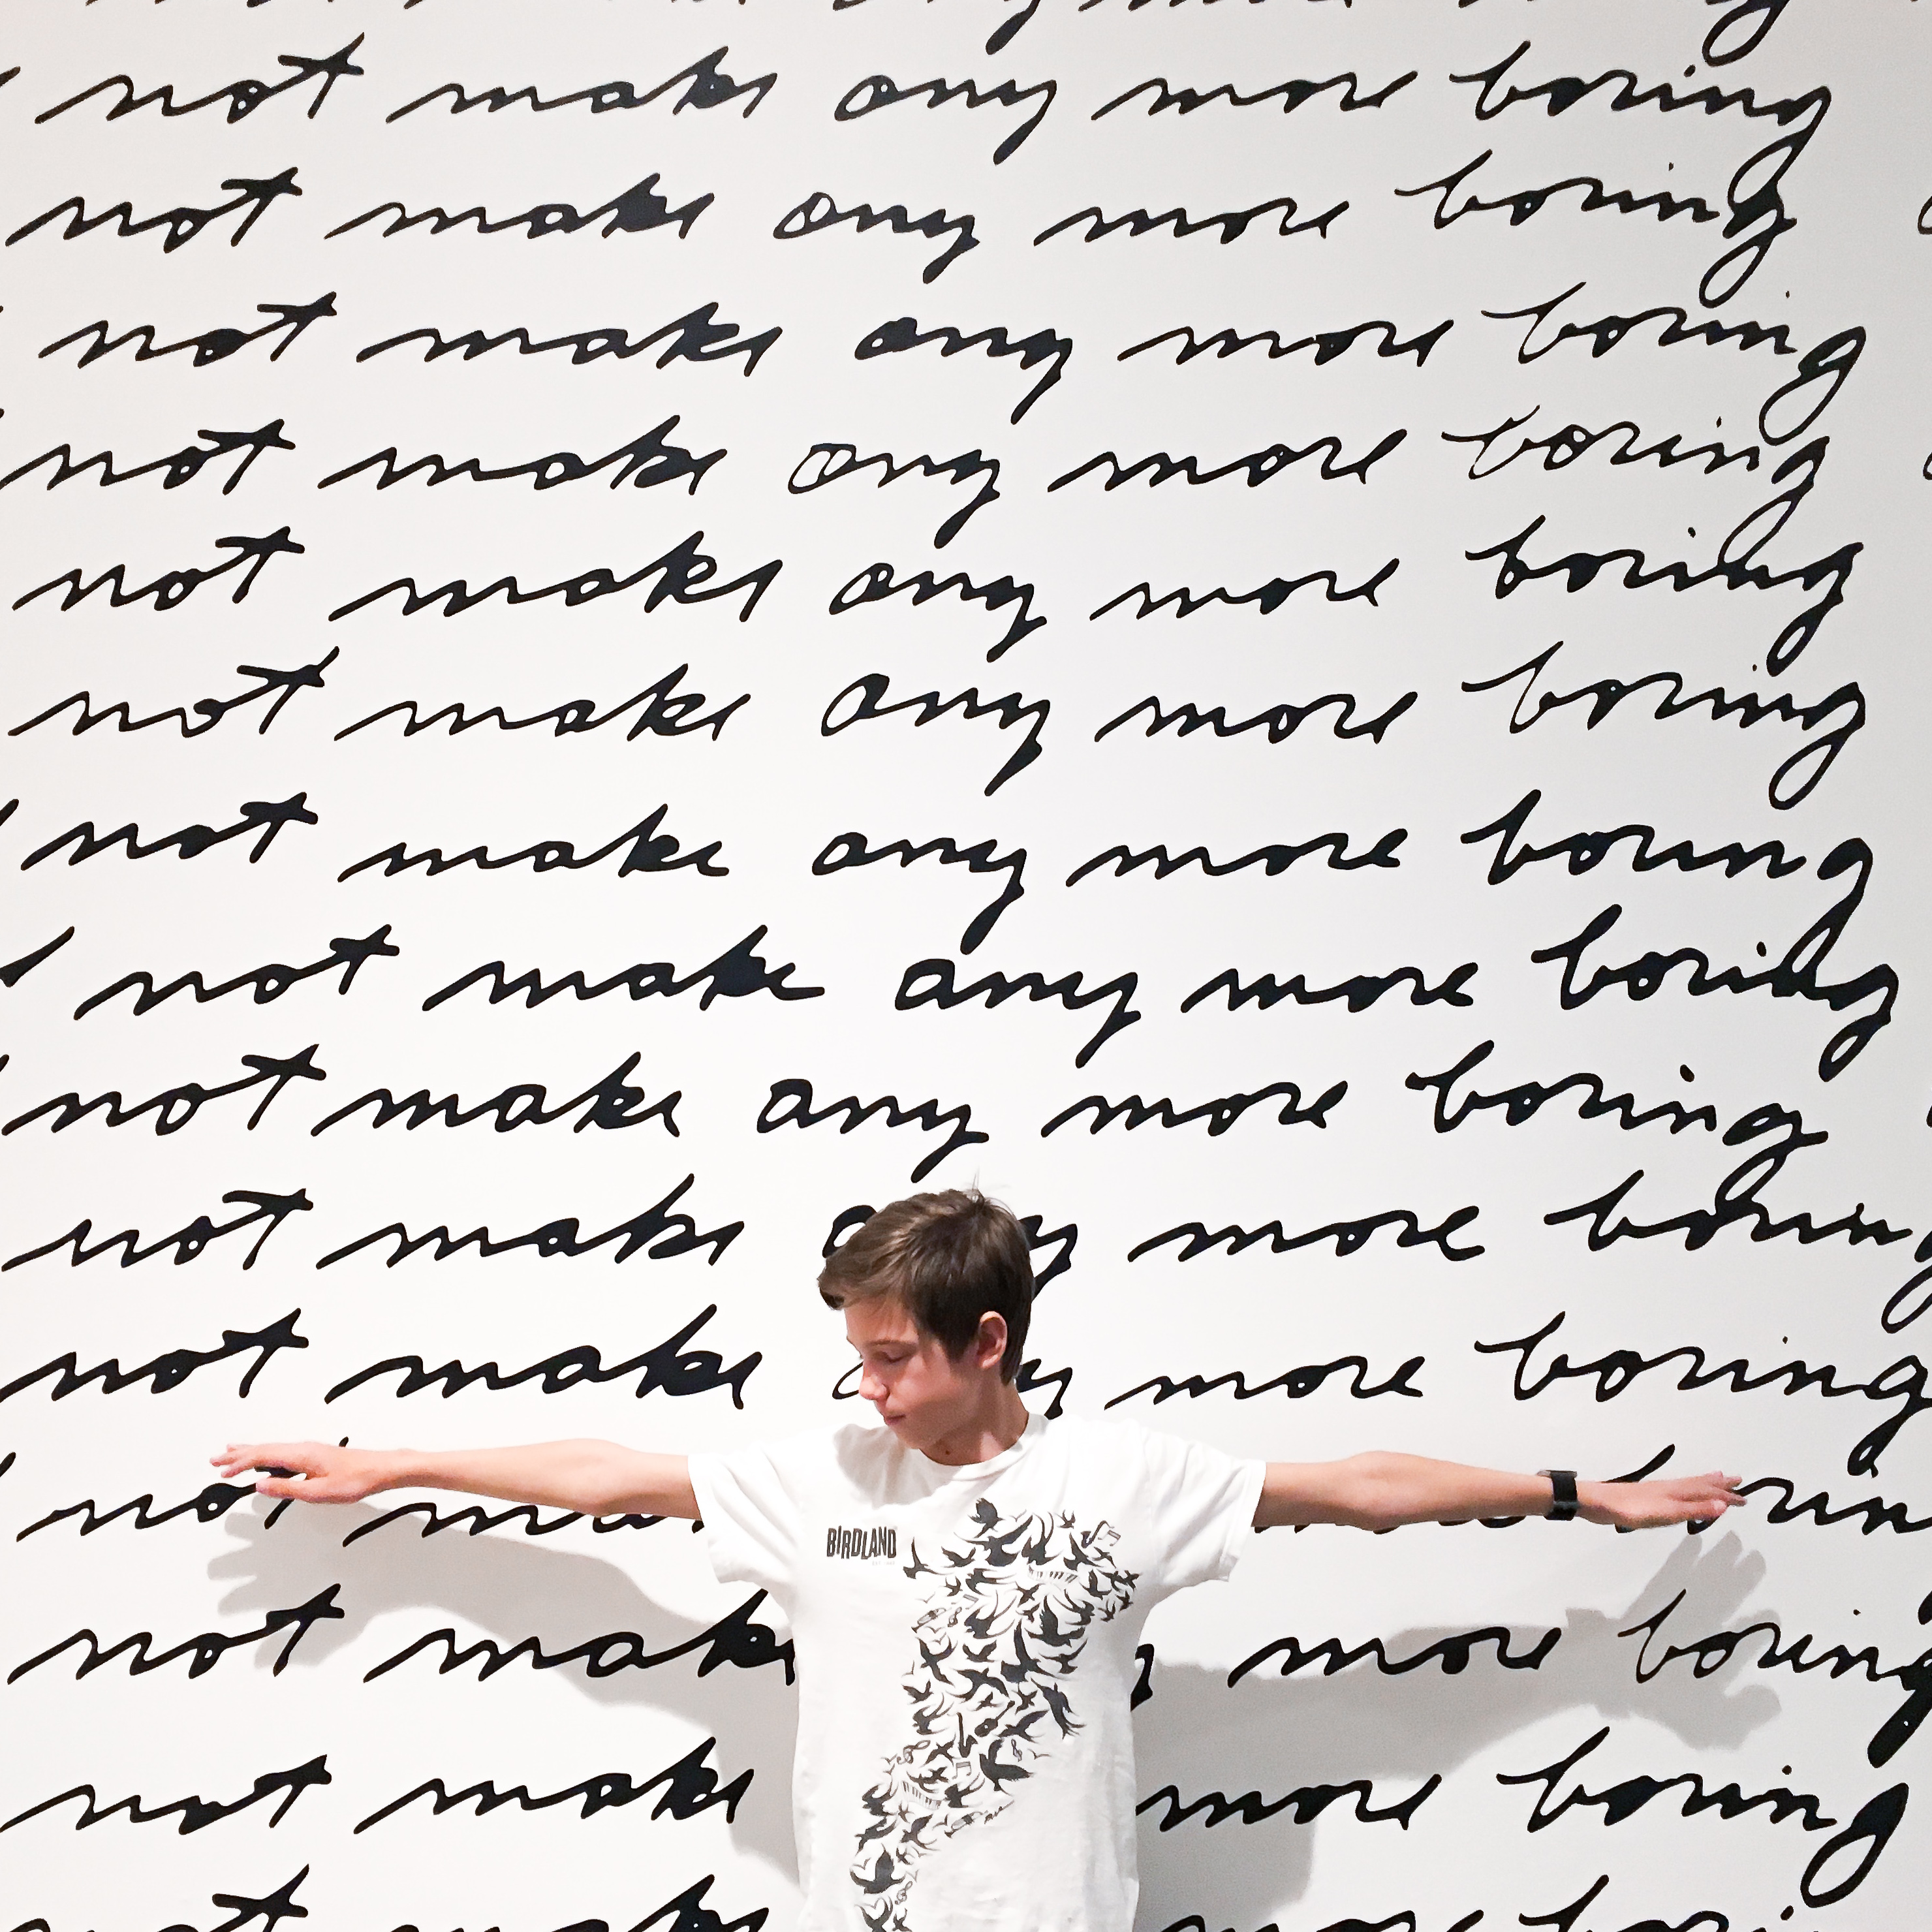 not make any more boring
not make any more boring
not make any more boring
not make any more boring
not make any more boring
not make any more boring
not make any more boring
not make any more boring
not make any more boring
not make more boring
not make more boring
not
BIRDLAND
not make more boring
not make more boring